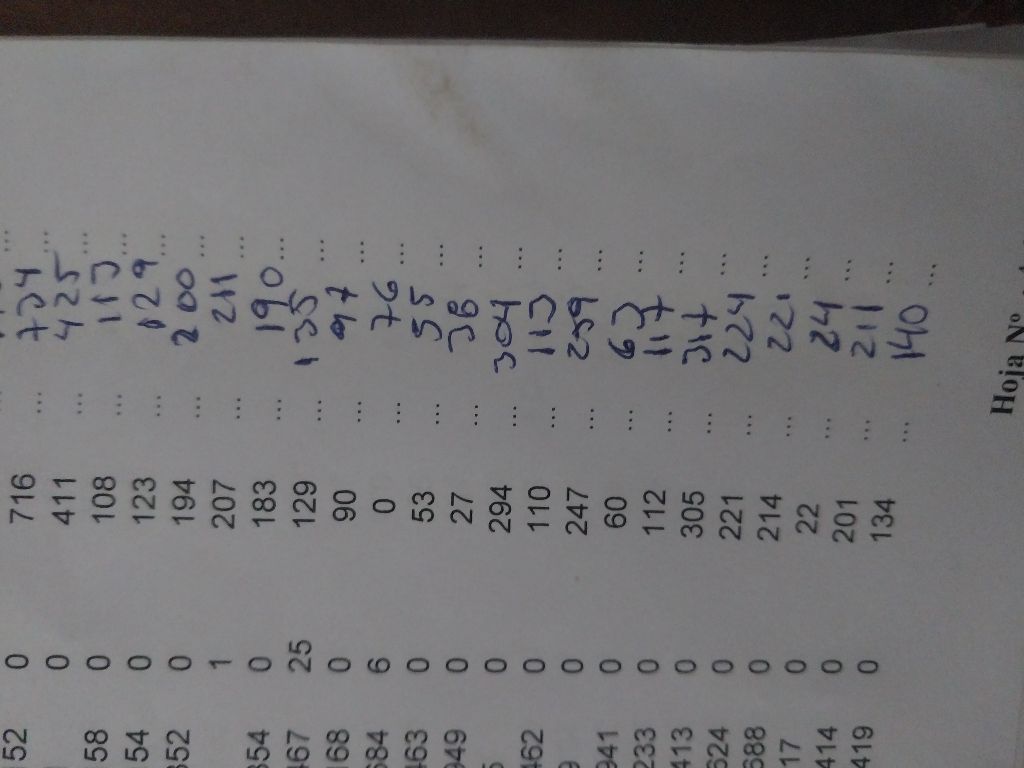 152 0 716 ... 734 ...
0 411 ... 425 ...
58 0 108 ... 113 ...
54 0 123 ... 129 ...
352 0 194 ... 200 ...
1 207 ... 211 ...
354 0 183 ... 190 ...
467 25 129 ... 135 ...
168 0 90 ... 97 ...
684 6 0 ... 76 ...
463 0 53 ... 55 ...
949 0 27 ... 38 ...
0 294 ... 304 ...
462 0 110 ... 113 ...
9 0 247 ... 259 ...
941 0 60 ... 63 ...
233 0 112 ... 117 ...
413 0 305 ... 317 ...
624 0 221 ... 224 ...
688 0 214 ... 221 ...
17 0 22 ... 24 ...
414 0 201 ... 211 ...
419 0 134 ... 140 ...
Hoja Nº